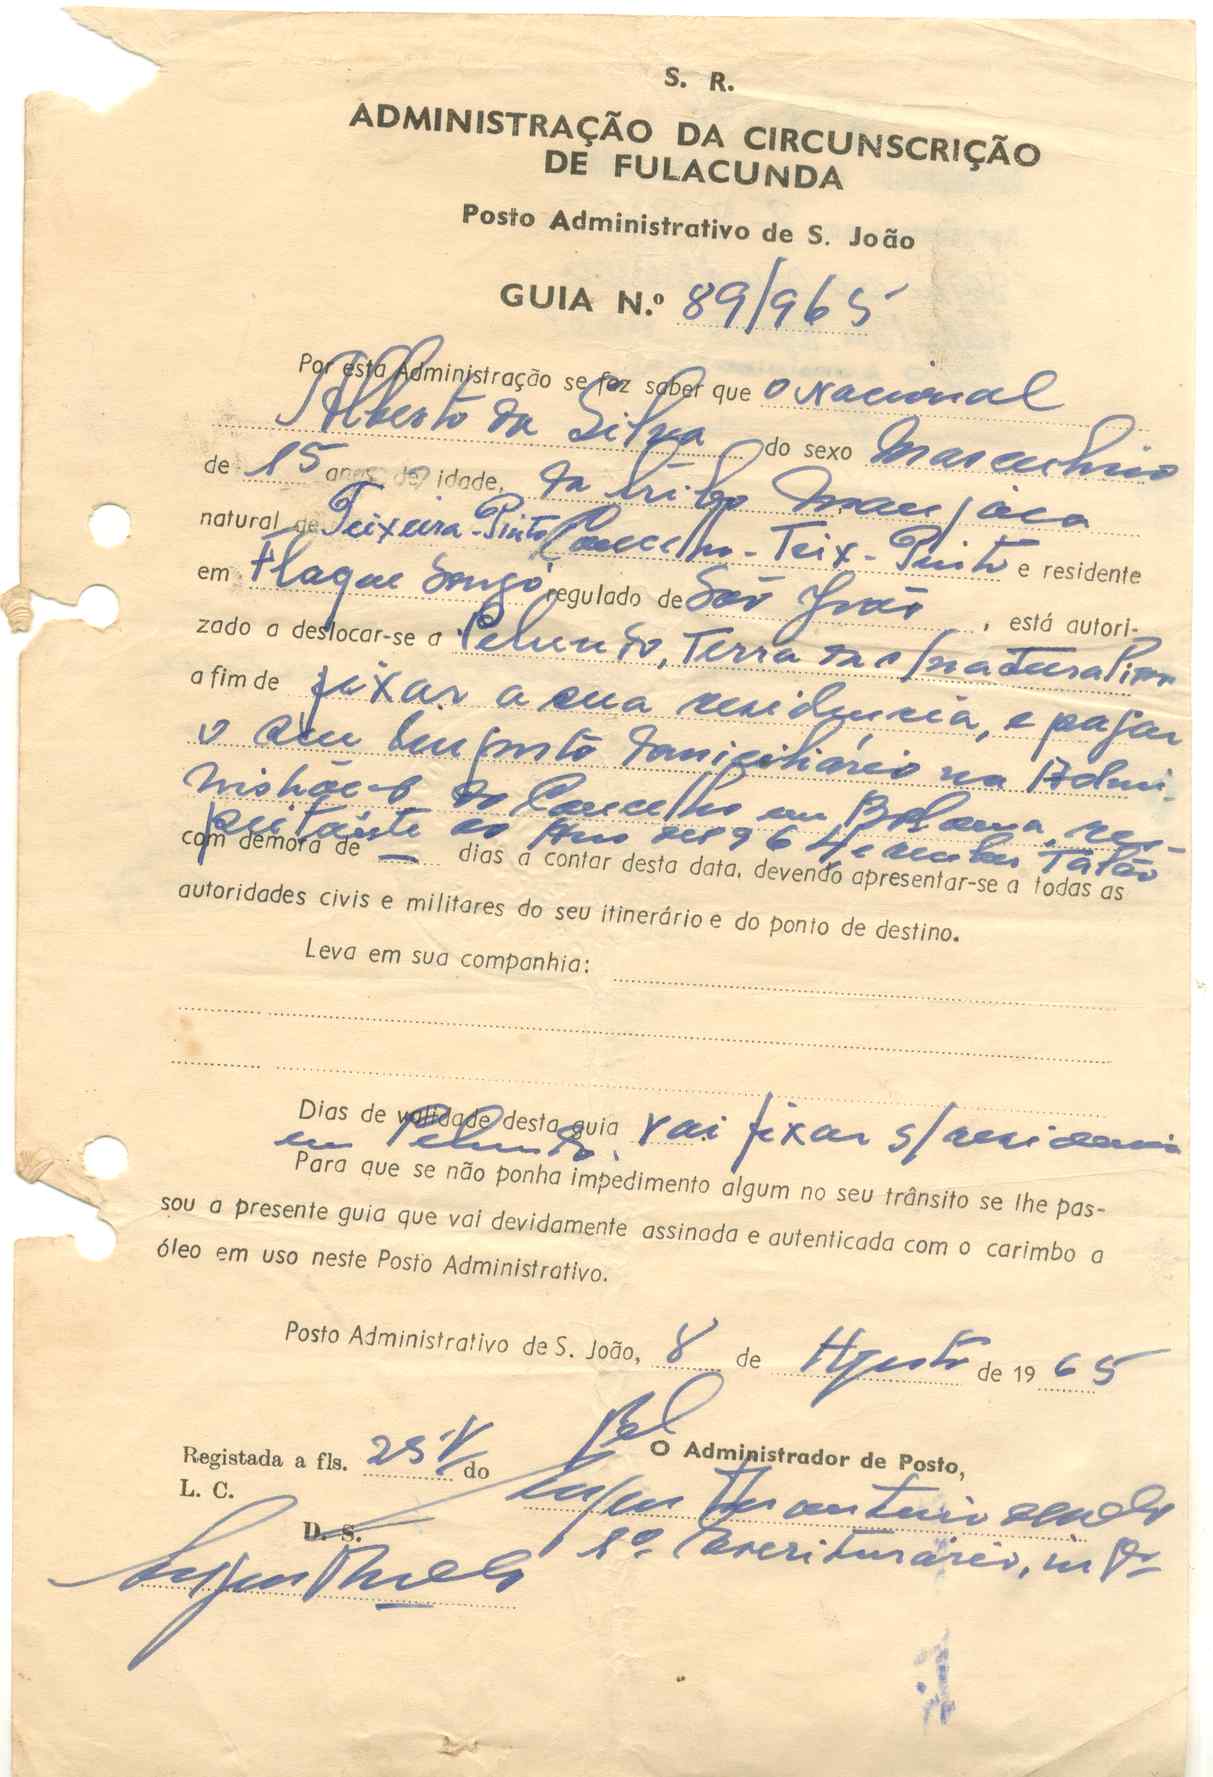 S. R.
ADMINISTRAÇÃO DA CIRCUNSCRIÇÃO
DE FULACUNDA
Posto Administrativo de S. João
GUIA N.º 89/965
Por esta Administração se faz saber que o nacional
Alberto da Silva do sexo Masculino
de 15 anos de idade, da tribo Manjaca
natural de Teixeira-Pinto Concelho-Teix-Pinto e residente
em regulado de São João, está autori-
zado a deslocar-se a Pelundo, Terra da s/naturalidade
a fim de fixar a sua residência, e pagar
o seu Imposto domiciliário na Admi-
nistração do Concelho em Bolama, res-
peitante ao Ano de 1964 Talão
com demora de — dias a contar desta data, devendo apresentar-se a todas as
autoridades civis e militares do seu itinerário e do ponto de destino.
Leva em sua companhia:
Dias de validade desta guia vai fixar s/residencia
em Pelundo.
Para que se não ponha impedimento algum no seu trânsito se lhe pas-
sou a presente guia que vai devidamente assinada e autenticada com o carimbo a
óleo em uso neste Posto Administrativo.
Posto Administrativo de S. João, 8 de Agosto de 1965
Registada a fls. 25 V do
L. C.
O Administrador de Posto,
D. S.
1º Escriturário,